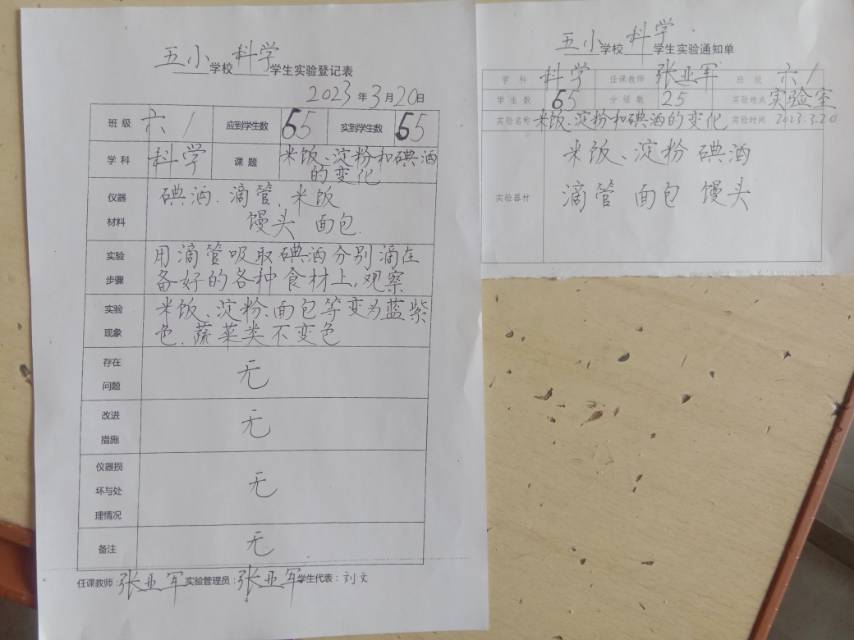 五小学校 科学 学生实验登记表
2023年3月20日
班级 六1 应到学生数 65 实到学生数 65
学科 科学 课题 米饭、淀粉和碘酒
的变化
仪器
材料
碘酒、滴管、米饭
馒头 面包
实验
步骤
用滴管吸取碘酒分别滴在
备好的各种食材上,观察
实验
现象
米饭、淀粉、面包等变为蓝紫
色.蔬菜类不变色
存在
问题
无
改进
措施
无
仪器损
坏与处
理情况
无
备注 无
任课教师:张亚军 实验管理员:张亚军 学生代表:刘文
五小学校 科学 学生实验通知单
学科 科学 任课教师 张亚军 班级 六1
学生数 65 分组数 25 实验地点 实验室
实验名称 米饭、淀粉和碘酒的变化 实验时间 2023.3.20
实验器材
米饭、淀粉 碘酒
滴管 面包 馒头